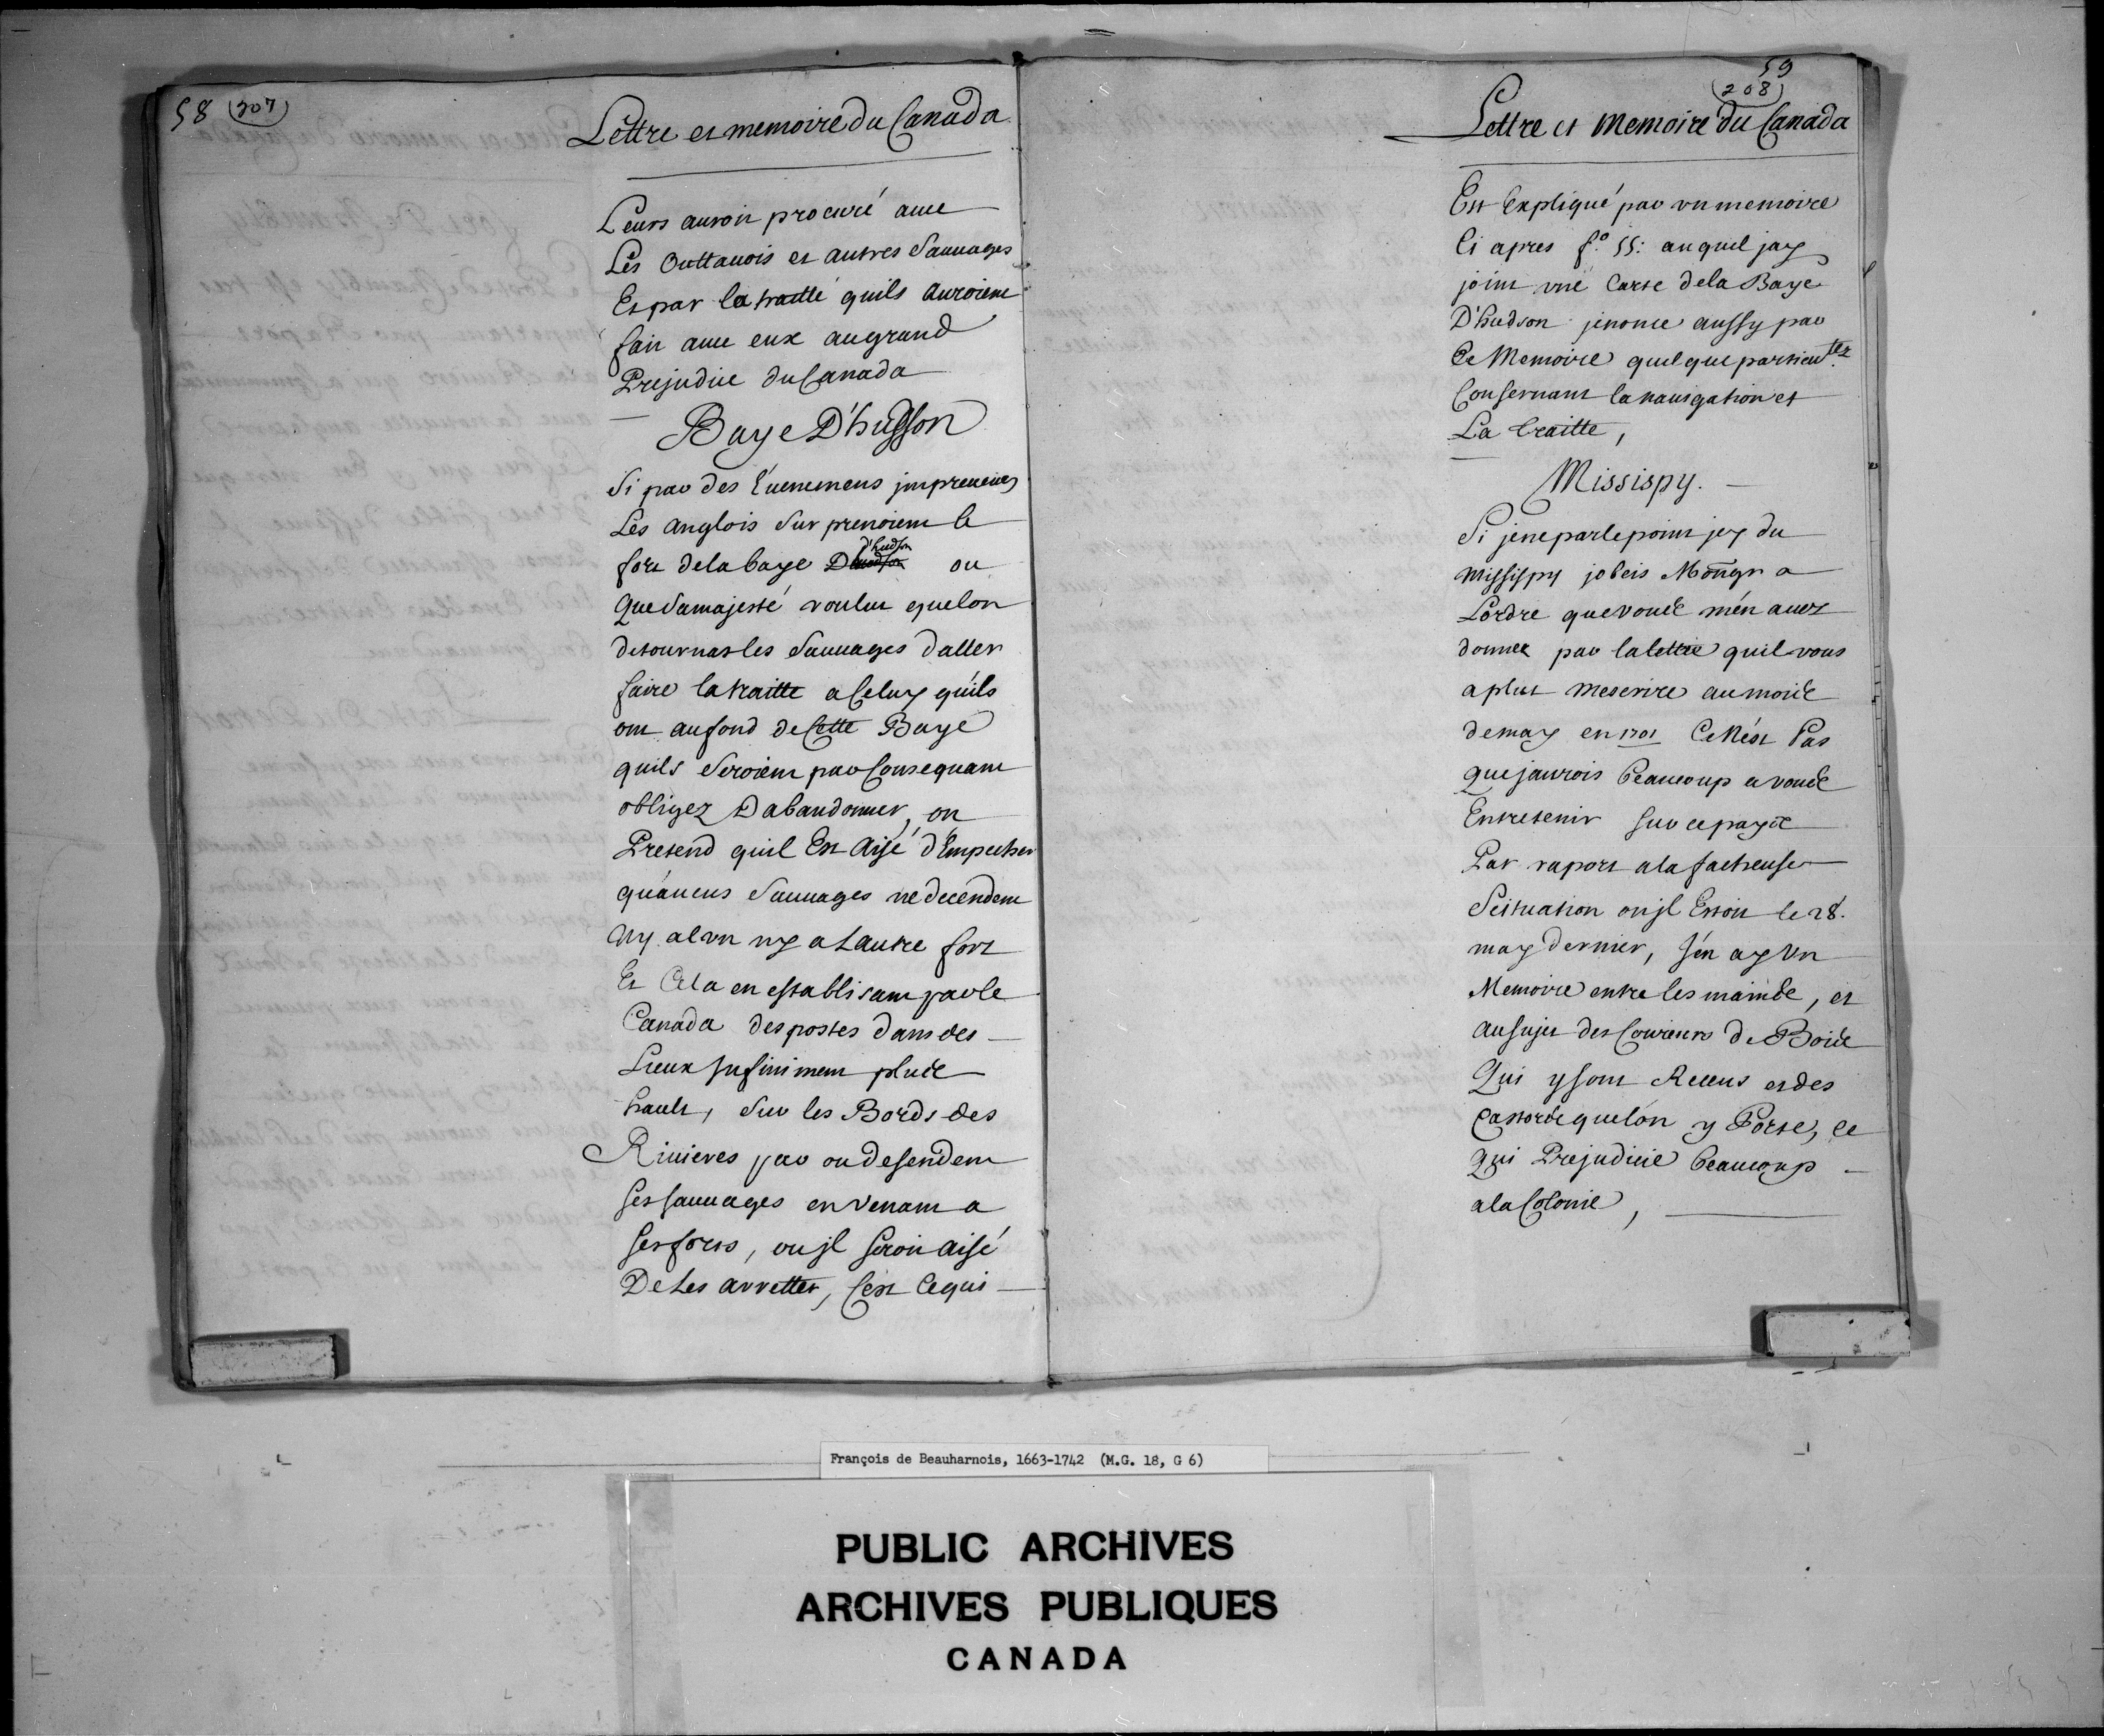 58 (207)
Lettre et memoire du Canada
Leurs auroit procuré auec
Les Outtauois et autres Sauuages
Et par la traitte quils auroient
fait auec eux au grand
Prejudice du Canada
Baye D'hudson
Si par des Euenemens jmpreueues
Les anglois Surprenoient le
fort de la baye d'hudson ou
que Sa majesté voulut quelon
detournat les Sauuages daller
faire la traitte a Celuy quils
ont au fond de Cette Baye
quils Seroient par Consequant
obligez Dabandonner, on
Pretend quil Est aisé d'Empecher
quaucuns Sauuages ne decendent
ny alvn ny a Lautre fort
Et Cela en establisant par le
Canada des postes dans des
Lieux Jnfiniment plus
hault, Sur les Bords des
Riuieres par ou desendent
Ses sauuages en venant a
Ses forts, ou jl Seroit aisé
De Les arretter, C'est Ce qui
59
(208)
Lettre et Memoire du Canada
Est Expliqué par vn memoire
Ci apres f.º 55: auquel jay
joint vne Carte dela Baye
D'hudson jenonce aussy par
Ce Memoire quelque particul.tez
Consernant la nauigation et
La traitte,
Missispy.
Si je ne parle point jcy du
Missispy jobeis Mongr a
Lordre que vous m'en auez
donnez par la lettre quil vous
a plut mescrire au mois
de may en 1701 Ce N'est Pas
que jaurois beaucoup a vous
Entretenir sur ce pays
Par raport a la facheuse
Scituation ou jl Estoit le 28.
may dernier, j'en ay Vn
Memoire entre les mains, et
au sujet des Coureurs de Bois
Qui y sont Receus et des
Castors quelon y Porte, ce
qui Prejudicie beaucoup
a la Colonie,
François de Beauharnois, 1663-1742 (M.G. 18, G 6)
PUBLIC ARCHIVES
ARCHIVES PUBLIQUES
CANADA